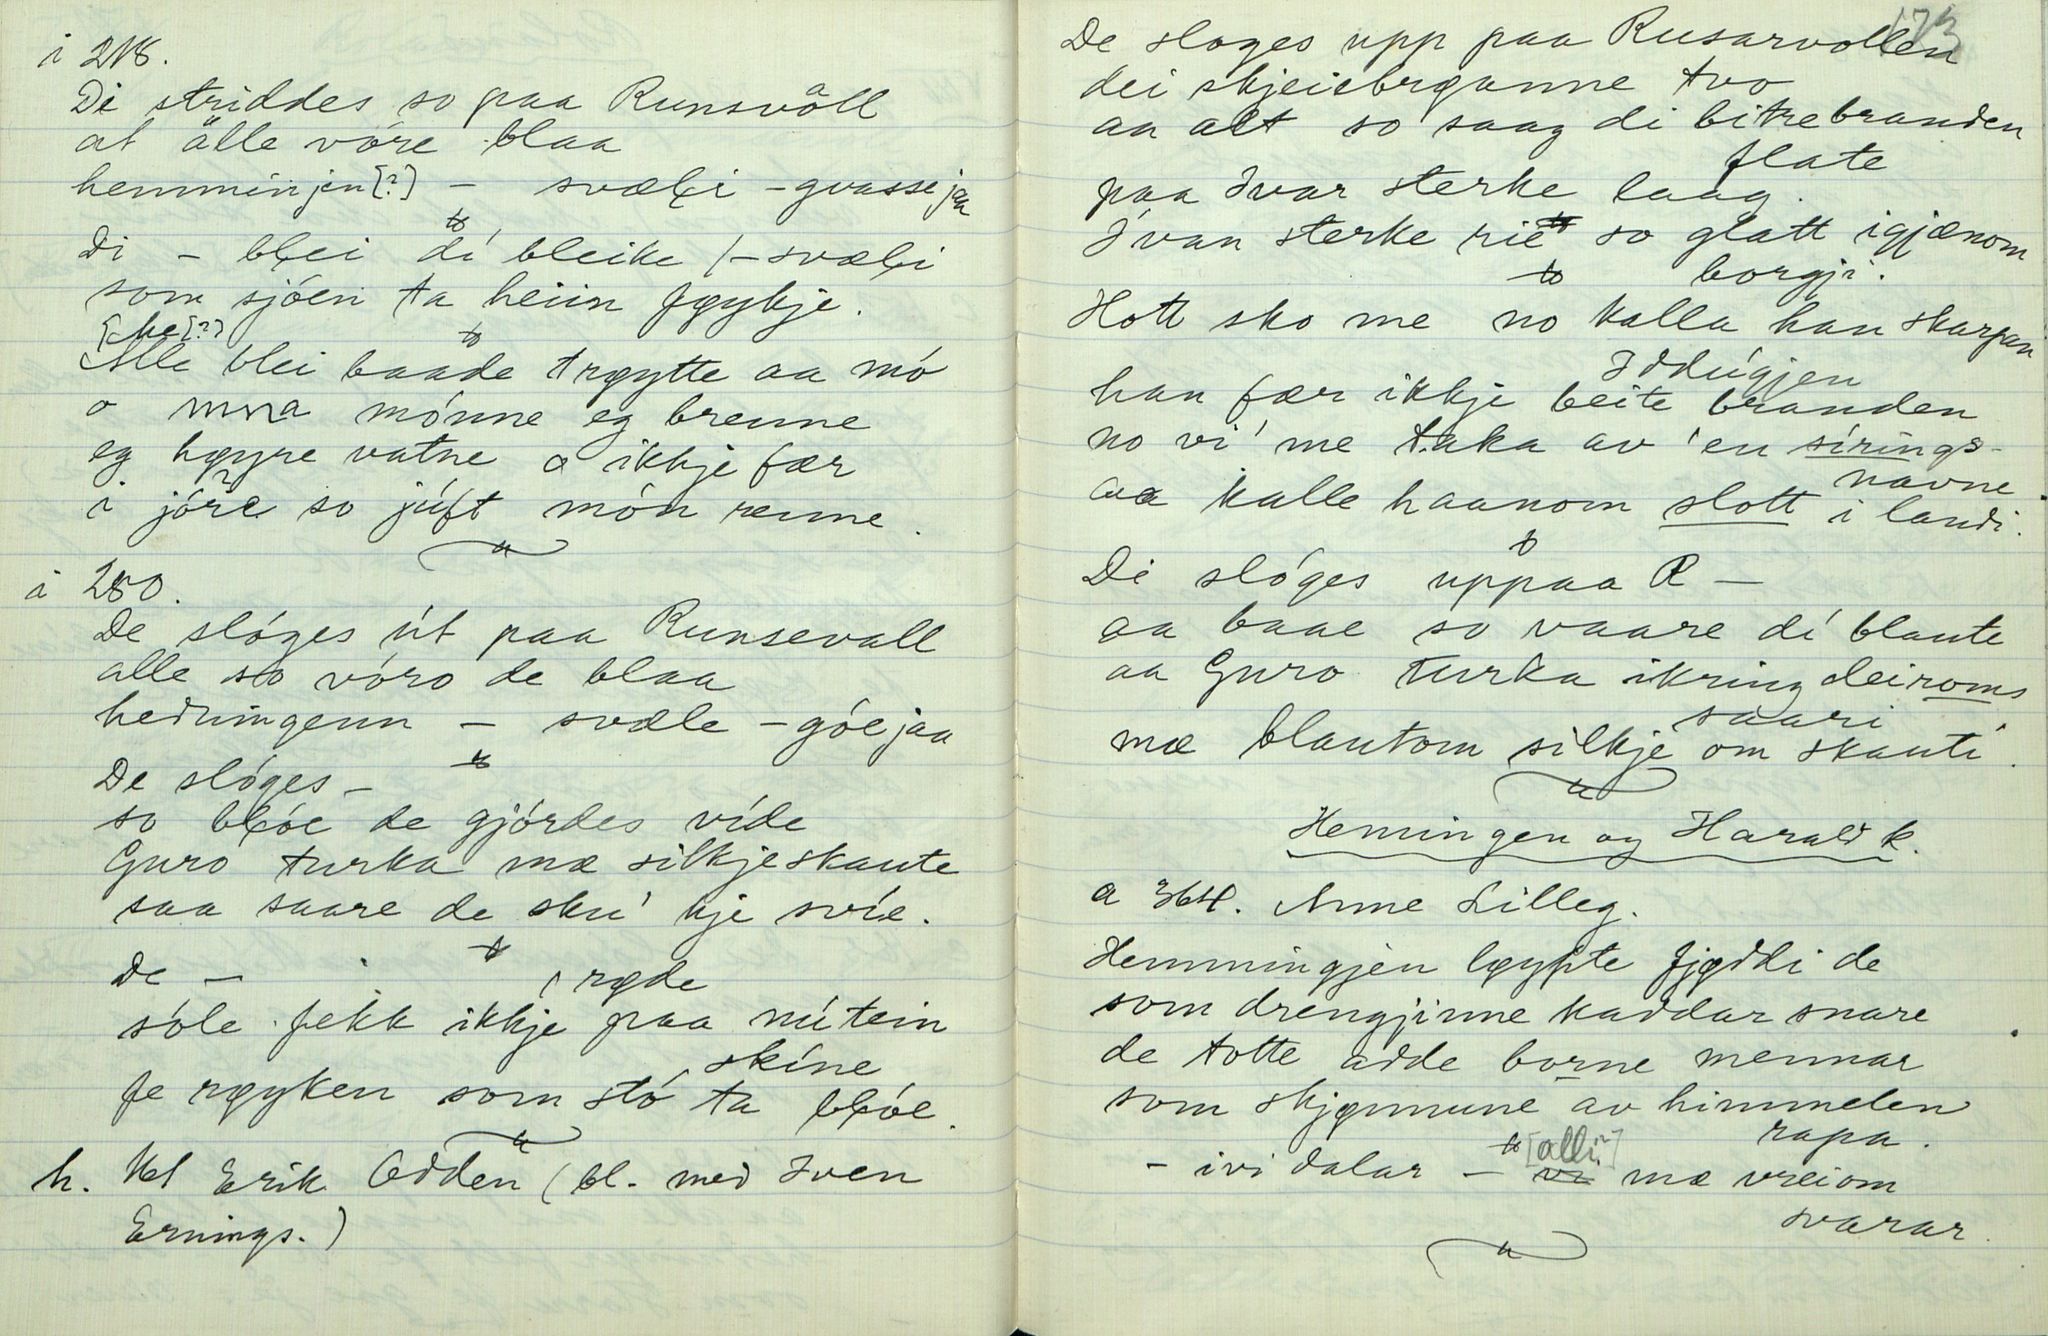 i 218.
Di striddes so paa Runsvåll
at älle vóre blaa
hemminjen [?] – svæłi – gvasse jaa
Di – błei di bleike / – svæłi
som sjóen ta heiin fygykje.
[ke[?]]
Alle blei baade trøytte aa mó
o mna mónne eg brenne
eg høyre vatne o ikkje fær
i jóre so júft món renne.
i 250.
De slóges út paa Runsevall
alle so vóro de blaa
hedningenn – svæle – góe jaa
De slóges –
so błóe de gjórdes víde
Guro turka mæ silkjeskaute
saa saare de sku' kje svíe.
De – røde
sóle fekk ikkje paa nútein
skíne
fe røyken som stó ta błóe.
h. Vel Erik Odden (bl. med Iven
Ernings.)
173
De sloges upp paa Rusarvollen
dei skjeiebrøanne tvo
aa alt so saag di bitrebranden
flate
paa Ivar sterke laag.
Ívan sterke rie so glatt igjænom
borgji.
Hott sko me no kalla han skarpan
Iddúgjen
han fær ikkje beite branden
no vi' me taka av 'en sírings-
navne
aa kalle haanom slott i landi.
Di slóges uppaa R –
aa baae so vaare dí blaute
aa Guro turka ikring deiroms
saari
mæ blautom silkje om skauti.
Hemingen og Harald k.
a 364. Anne Lilleg.
Hemmingjen løypte fjøddi de
som drengjinne kaddar snare
de totte adde borne mennar
som skjønnune av himmelen
rapa.
– ivi dalar – [alli?] mæ vreiom
svarar.